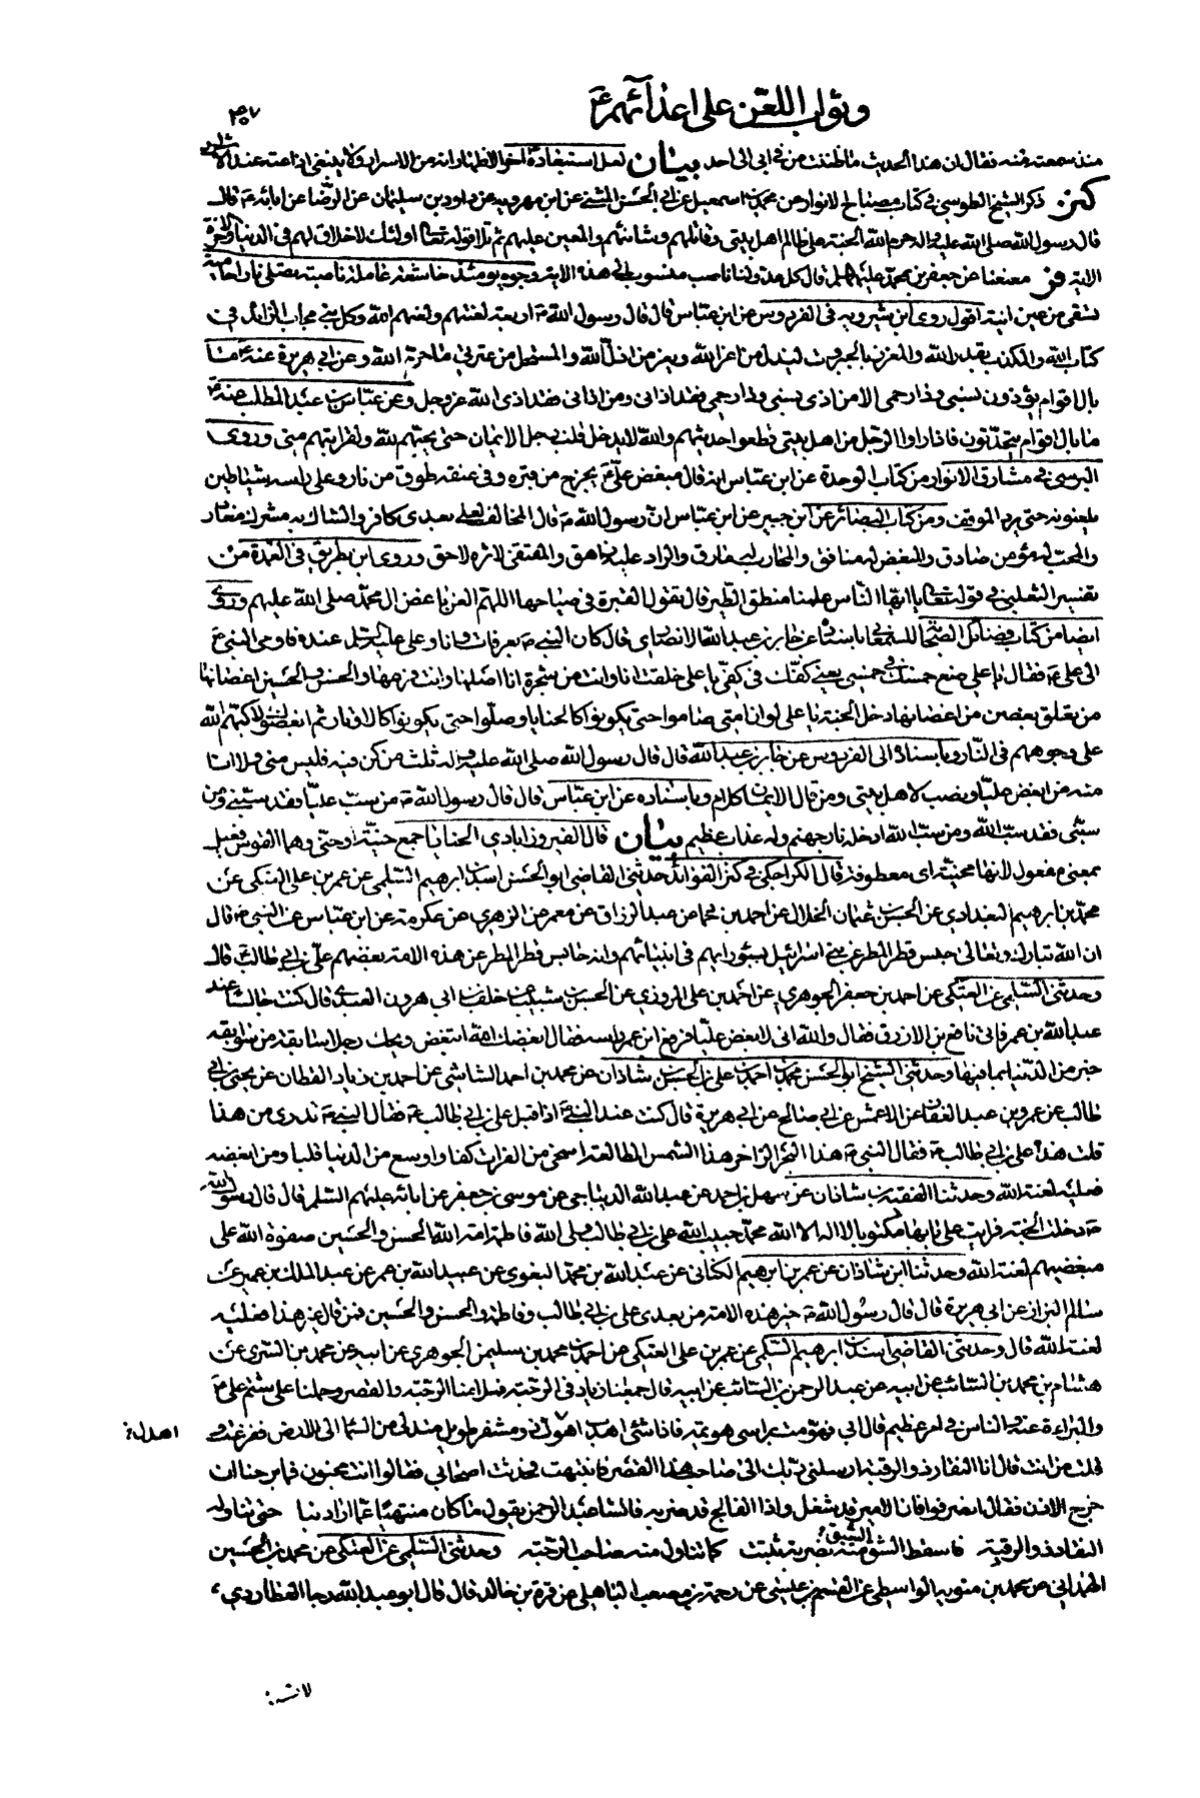 وثواب اللعن على اعدائهم ع
منذ سمعته منه فقال ان هذا الحديث ما ظننت من في ابي الى احد بيان لعل استنفاده اخيرا لاظهار انه من الاسرار ولا ينبغي اذاعته عند الاشرار
كنز ذكر الشيخ الطوسي في كتاب مصباح الانوار عن محمد بن اسمعيل عن ابي الحسن المثنى عن ابن مهرويه عن داود بن سليمان عن الرضا عن ابائه ع قال
قال رسول الله صلى الله عليه واله حرم الله الجنة على ظالم اهل بيتي وقاتلهم وشانئهم والمعين عليهم ثم تلا قوله تعالى اولئك لا خلاق لهم في الدنيا والاخرة
الاية فر معنعنا عن جعفر بن محمد عليهما السلم قال كل عدو لنا ناصب منسوب الى هذه الاية وجوه يومئذ خاشعة عاملة ناصبة تصلى نارا حامية
تسقى من عين انية اقول روى ابن شيرويه في الفردوس عن ابن عباس قال قال رسول الله ص اربعة لعنتهم ولعنهم الله وكل نبي مجاب الزائد في
كتاب الله والمكذب بقدر الله والمعزز بالجبروت ليذل من اعز الله ويعز من اذل الله والمستحل من عترتي ما حرم الله وعن ابي هريرة عنه ع ما
بال اقوام يؤذون نسبي وذا رحمي الا من اذى نسبي وذا رحمي فقد اذاني ومن اذاني فقد اذى الله عز وجل وعن عباس بن عبد المطلب عنه ع
ما بال اقوام يتحدثون فاذا راوا الرجل من اهل بيتي قطعوا حديثهم والله لا يدخل قلب رجل الايمان حتى يحبهم لله ولقرابتهم مني وروى
البرسي في مشارق الانوار من كتاب الوحدة عن ابن عباس انه قال مبغض علي ع يخرج من قبره وفي عنقه طوق من نار وعلى راسه شياطين
يلعنونه حتى يرد الموقف ومن كتاب البصائر عن ابن جبير عن ابن عباس ان رسول الله ص قال المخالف لعلي بعدي كافر والشاك به مشرك مغادر
والمحب له مؤمن صادق والمبغض له منافق والمحارب له مارق والراد عليه زاهق والمقتفي لاثره لاحق وروى ابن بطريق في العمدة من
تفسير الثعلبي في قوله تعالى يا ايها الناس علمنا منطق الطير قال يقول القنبرة في صياحها اللهم العن باغض ال محمد صلى الله عليهم وروى
ايضا من كتاب فضائل الصحابة للسمعاني باسناده عن جابر بن عبد الله الانصاري قال كان النبي ص بعرفات وانا وعلي عليه السلم عنده فاومى النبي ص
الى علي ع فقال يا علي ضع خمسك في خمسي يعني كفك في كفي يا علي خلقت انا وانت من شجرة انا اصلها وانت فرعها والحسن والحسين اغصانها
من تعلق بغصن من اغصانها دخل الجنة يا علي لو ان امتي صاموا حتى يكونوا كالحنايا وصلوا حتى يكونوا كالاوتار ثم ابغضوك لاكبهم الله
على وجوههم في النار وباسناده الى الفردوس عن جابر بن عبد الله قال قال رسول الله صلى الله عليه واله ثلث من كن فيه فليس مني ولا انا
منه من ابغض عليا ونصب لاهل بيتي ومن قال الايمان كلام وباسناده عن ابن عباس قال قال رسول الله ص من سب عليا فقد سبني ومن
سبني فقد سب الله ومن سب الله ادخله نار جهنم وله عذاب عظيم بيان قال الفيروزابادي الحنايا جمع حنية او حني وهما القوس فعيل
بمعنى مفعول لانها محنية اي معطوفة قال الكراجكي في كنز الفوائد حدثني القاضي ابو الحسن اسد بن ابرهيم السلمي عن عمر بن علي العتكي عن
محمد بن ابرهيم البغدادي عن الحسن بن عثمان الخلال عن احمد بن حماد عن عبد الرزاق عن معمر عن الزهري عن عكرمة عن ابن عباس عن النبي ص قال
ان الله تبارك وتعالى حبس قطر المطر عن بني اسرائيل بسوء رايهم في انبيائهم وانه حابس قطر المطر عن هذه الامة ببغضهم علي بن ابي طالب ع قال
وحدثني السلمي عن العتكي عن احمد بن جعفر الجوهري عن احمد بن علي المروزي عن الحسن بن شبيب عن خلف بن ابي هرون العبدي قال كنت جالسا عند
عبد الله بن عمر فاتى نافع بن الازرق فقال والله اني لابغض عليا فرفع ابن عمر راسه فقال ابغضك الله اتبغض ويحك رجلا سابقة من سوابقه
خير من الدنيا بما فيها وحدثني الشيخ ابو الحسن محمد بن احمد بن علي بن الحسن بن شاذان عن محمد بن احمد الشاشي عن احمد بن زياد القطان عن يحيى بن ابي
طالب عن عمرو بن عبد الغفار عن الاعمش عن ابي صالح عن ابي هريرة قال كنت عند النبي ص اذ اقبل علي بن ابي طالب ع فقال النبي ص تدري من هذا
قلت هذا علي بن ابي طالب ع فقال النبي ص هذا البحر الزاخر هذا الشمس الطالعة اسخى من الفرات كفا واوسع من الدنيا قلبا ومن ابغضه
فعليه لعنة الله وحدثنا الفقيه بن شاذان عن سهل بن احمد عن عبد الله الديباجي عن موسى بن جعفر عن ابائه عليهم السلم قال قال رسول الله
ص دخلت الجنة فرايت على بابها مكتوبا لا اله الا الله محمد حبيب الله علي بن ابي طالب ولي الله فاطمة امة الله الحسن والحسين صفوة الله على
مبغضيهم لعنة الله وحدثنا ابن شاذان عن عمر بن ابرهيم الكناني عن عبد الله بن محمد البغوي عن عبيد الله بن عمر عن عبد الملك بن عمير عن
سالم البزاز عن ابي هريرة قال قال رسول الله ص خير هذه الامة من بعدي علي بن ابي طالب وفاطمة والحسن والحسين فمن قال غير هذا فعليه
لعنة الله قال وحدثني القاضي اسد بن ابرهيم السلمي عن عمر بن علي العتكي عن احمد بن محمد بن سليمن الجوهري عن ابيه عن محمد بن السري عن
هشام بن محمد بن السائب عن ابيه عن عبد الرحمن بن السائب عن ابيه قال جمعنا زياد في الرحبة فملا منا الرحبة والقصر وحملنا على شتم علي ع
والبراءة عنه والناس في امر عظيم قال ابي فهومت براسي هويمة فاذا شئ اهدب اهدل ذو مشفر طويل متدلى من السما الى الارض ففزعت و
اهدل :
قلت من انت قال انا النقاد ذو الرقبة ارسلني ربك الى صاحب هذا القصر فانتبهت فحدثت اصحابي فقالوا انت مجنون فما برحنا ان
خرج الاذن فقال انصرفوا فان الامير قد شغل واذا الفالج قد ضربه فانشا عبد الرحمن يقول ما كان منتهيا عما اراد بنا حتى تناوله
النقاد ذو الرقبة فاسقط الشق منه ضربة ثبتت كما تناول منه صاحب الرحبة وحدثني السلمي عن العتكي عن محمد بن الحسين
الشق :
الهمداني عن محمد بن منويه الواسطي عن القسم بن عيسى عن رحمة بن مصعب الباهلي عن قرة بن خالد قال قال ابو عبد الله رجا العطاردي